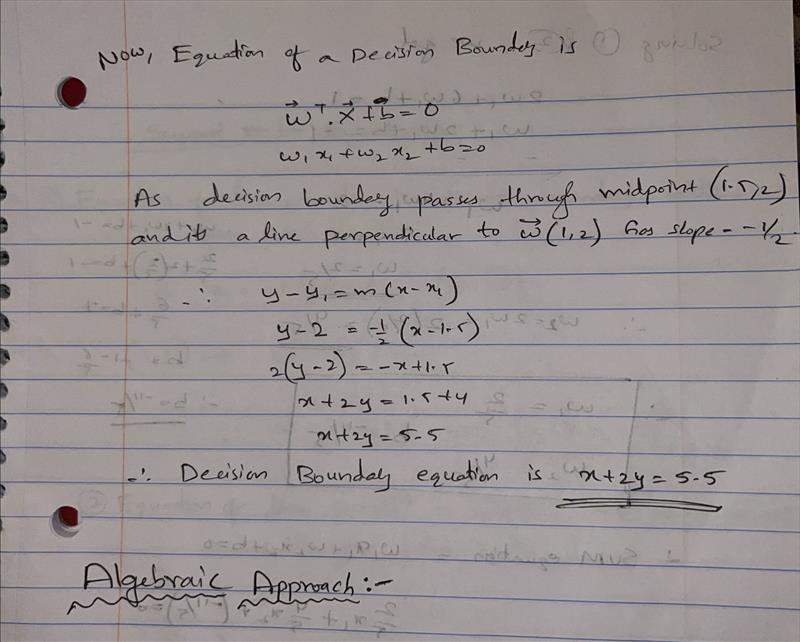 Now, Equation of a Decision Boundary is
w⃗ᵀ. x⃗ + b = 0
w₁ x₁ + w₂ x₂ + b = 0
As decision boundary passes through midpoint (1.5, 2)
and its a line perpendicular to w⃗ (1, 2) has slope - -1/2
∴ y - y₁ = m (x - x₁)
y - 2 = -1/2 (x - 1.5)
2(y - 2) = -x + 1.5
x + 2y = 1.5 + 4
x + 2y = 5.5
∴ Decision Boundary equation is x + 2y = 5.5
Algebraic Approach :-